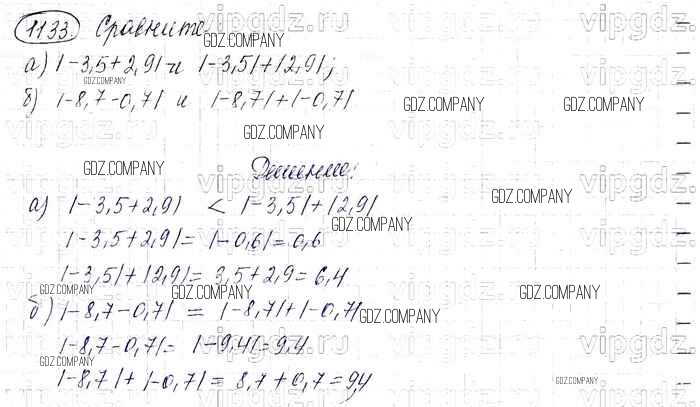 1133. Сравните
а) |-3,5+2,9| и |-3,5|+|2,9|;
б) |-8,7-0,7| и |-8,7|+|-0,7|
Решение:
а) |-3,5+2,9| < |-3,5|+|2,9|
|-3,5+2,9|= |-0,6|=0,6
|-3,5|+|2,9|= 3,5+2,9=6,4
б) |-8,7-0,7| = |-8,7|+|-0,7|
|-8,7-0,7|= |-9,4|=9,4
|-8,7|+|-0,7|= 8,7+0,7=9,4
GDZ.COMPANY
vipgdz.ru